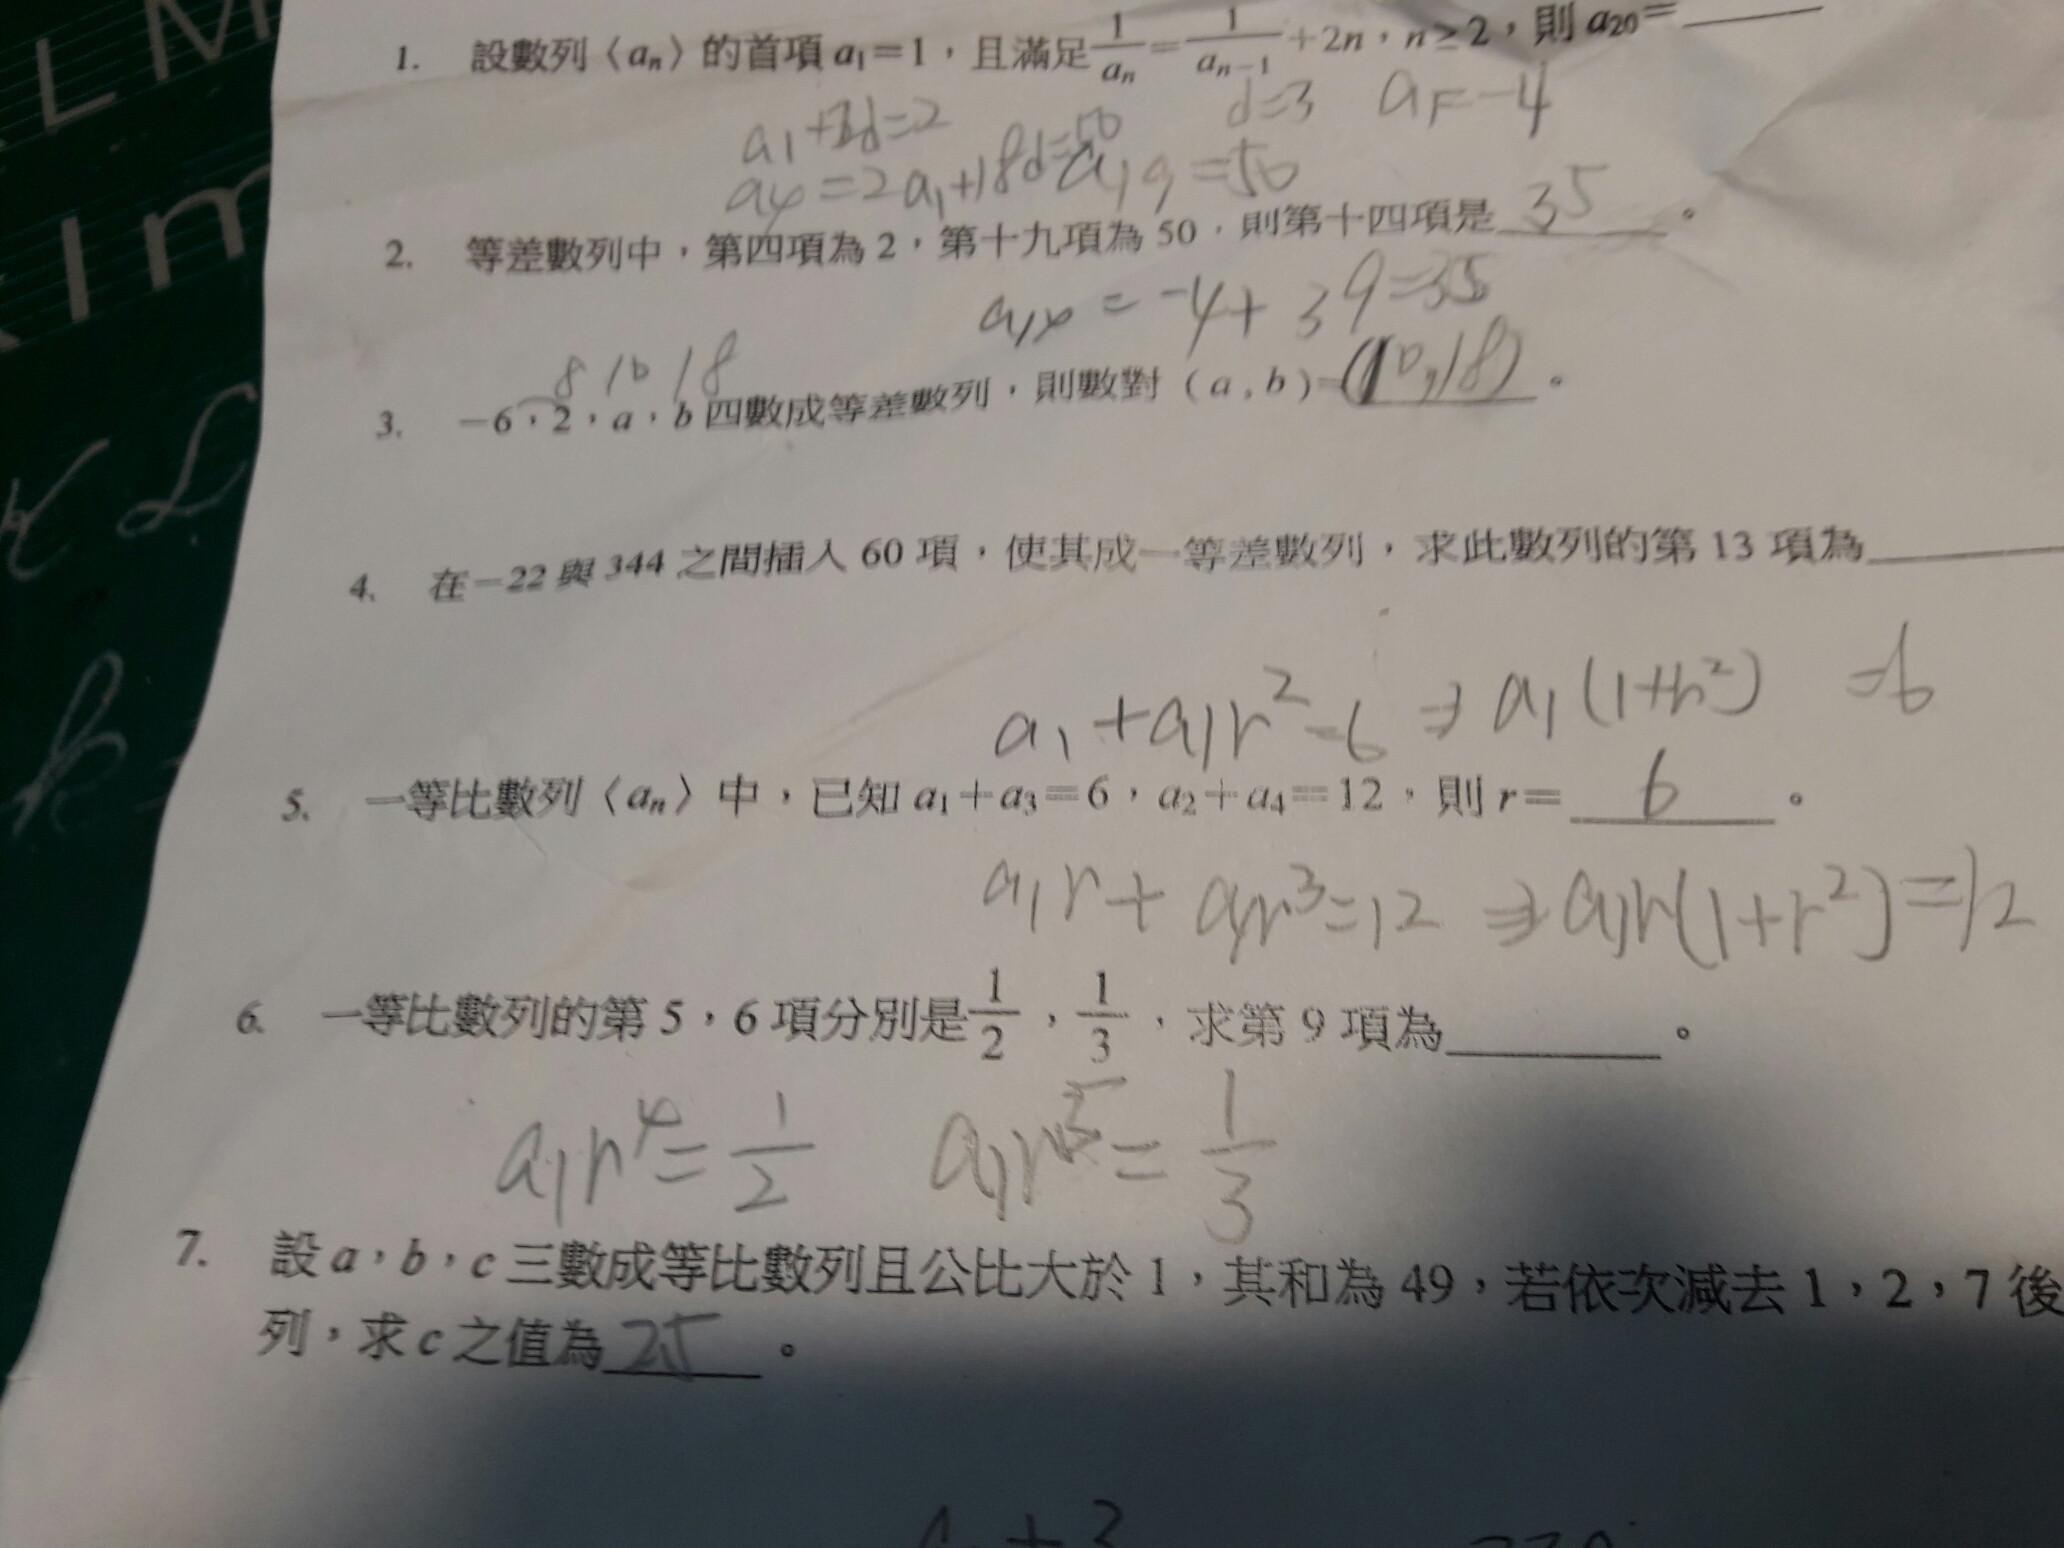 1. 設數列〈aₙ〉的首項 a₁=1，且滿足 1/aₙ = 1/aₙ₋₁ +2n，n≥2，則 a₂₀=______
d=3 a₁=-4
a₁+3d=2
a₄=2 a₁+18d=50 a₁₉=50
2. 等差數列中，第四項為 2，第十九項為 50，則第十四項是 35 。
a₁₄ = -4+39=35
8 10 18
3. －6，2，a，b 四數成等差數列，則數對（a , b）= (10,18) 。
4. 在－22 與 344 之間插入 60 項，使其成一等差數列，求此數列的第 13 項為______
a₁+a₁r²=6 ⇒ a₁(1+r²) =6
5. 一等比數列〈aₙ〉中，已知 a₁+a₃=6，a₂+a₄=12，則 r= 6 。
a₁r+a₁r³=12 ⇒ a₁r(1+r²)=12
6. 一等比數列的第 5，6 項分別是 1/2，1/3，求第 9 項為______。
a₁r⁴=1/2 a₁r⁵=1/3
7. 設 a，b，c 三數成等比數列且公比大於 1，其和為 49，若依次減去 1，2，7 後
列，求 c 之值為 25 。